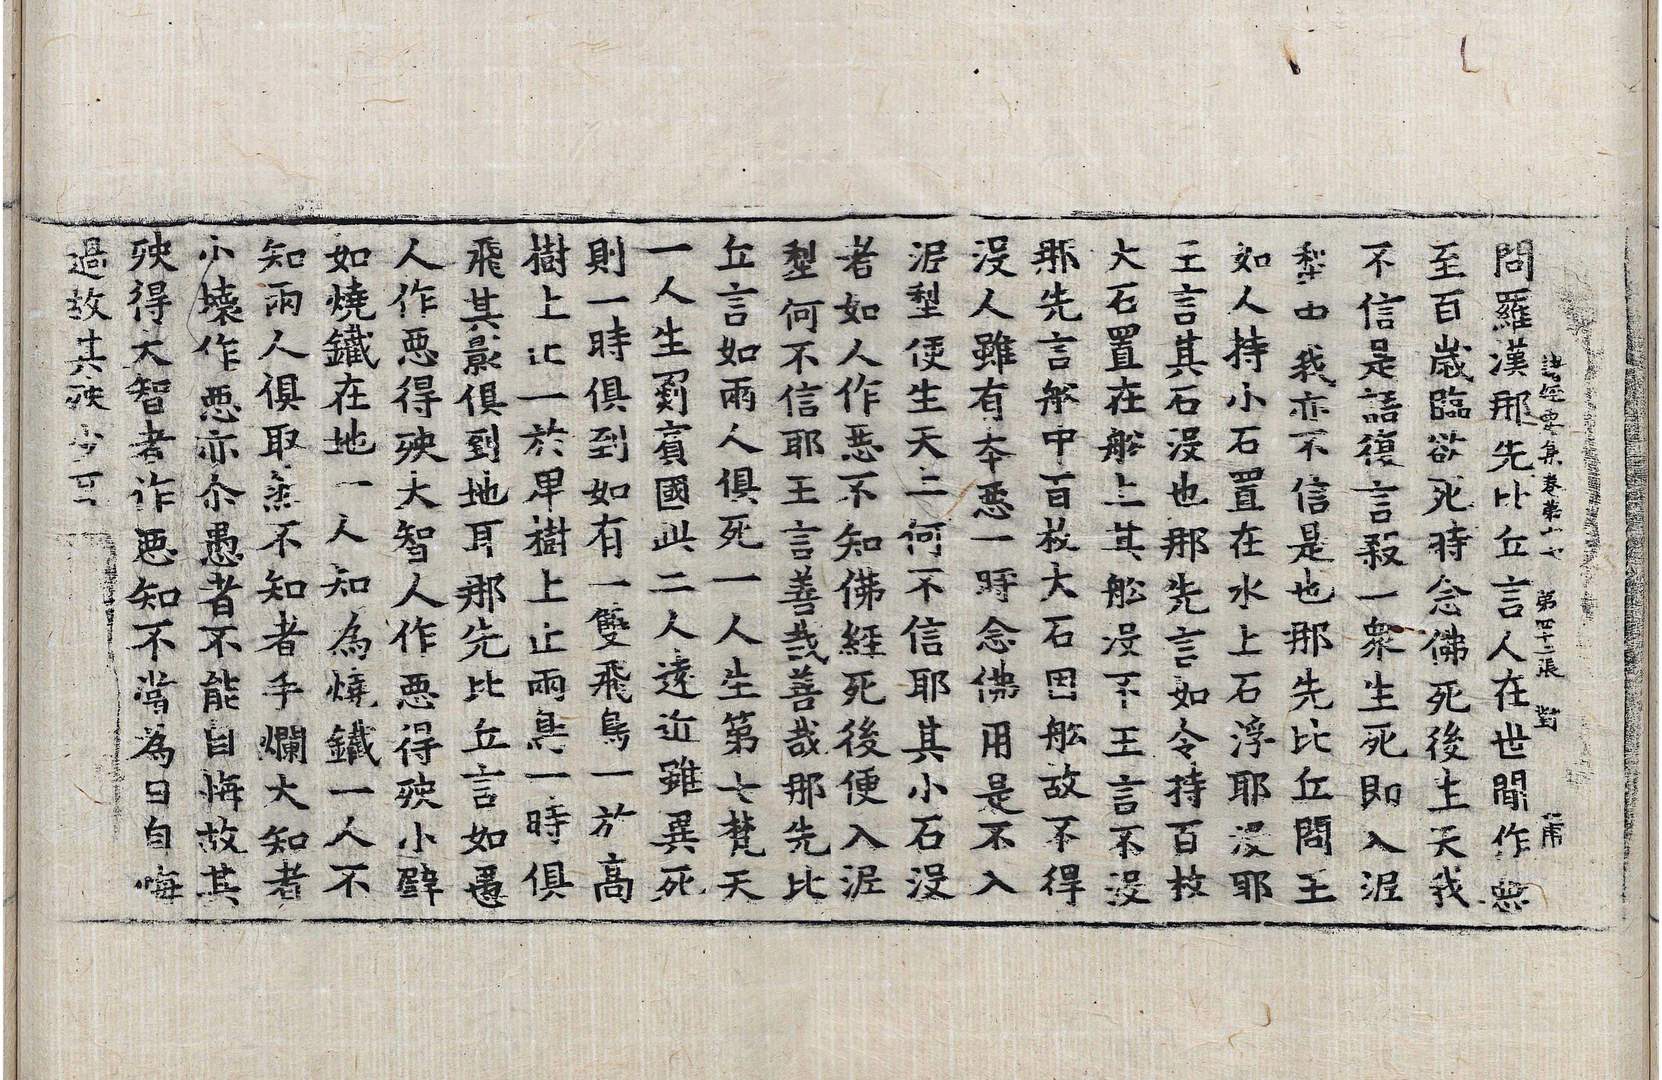 諸經要集卷第十七 第四十二張 對
問羅漢那先比丘言人在世間作惡
至百歲臨欲死時念佛死後生天我
不信是語復言殺一衆生死即入泥
犁中我亦不信是也那先比丘問王
如人持小石置在水上石浮耶沒耶
王言其石沒也那先言如令持百枚
大石置在舩上其舩沒不王言不沒
那先言舩中百枚大石因舩故不得
沒人雖有本惡一時念佛用是不入
泥犁便生天上何不信耶其小石沒
者如人作惡不知佛經死後便入泥
犁何不信耶王言善哉善哉那先比
丘言如兩人俱死一人生第七梵天
一人生罽賓國此二人遠近雖異死
則一時俱到如有一雙飛鳥一於高
樹上止一於卑樹上止兩鳥一時俱
飛其影俱到地耳那先比丘言如愚
人作惡得殃大智人作惡得殃小譬
如燒鐵在地一人知為燒鐵一人不
知兩人俱取然不知者手爛大知者
小壞作惡亦尒愚者不能自悔故其
殃得大智者作惡知不當為日自悔
過故其殃少耳